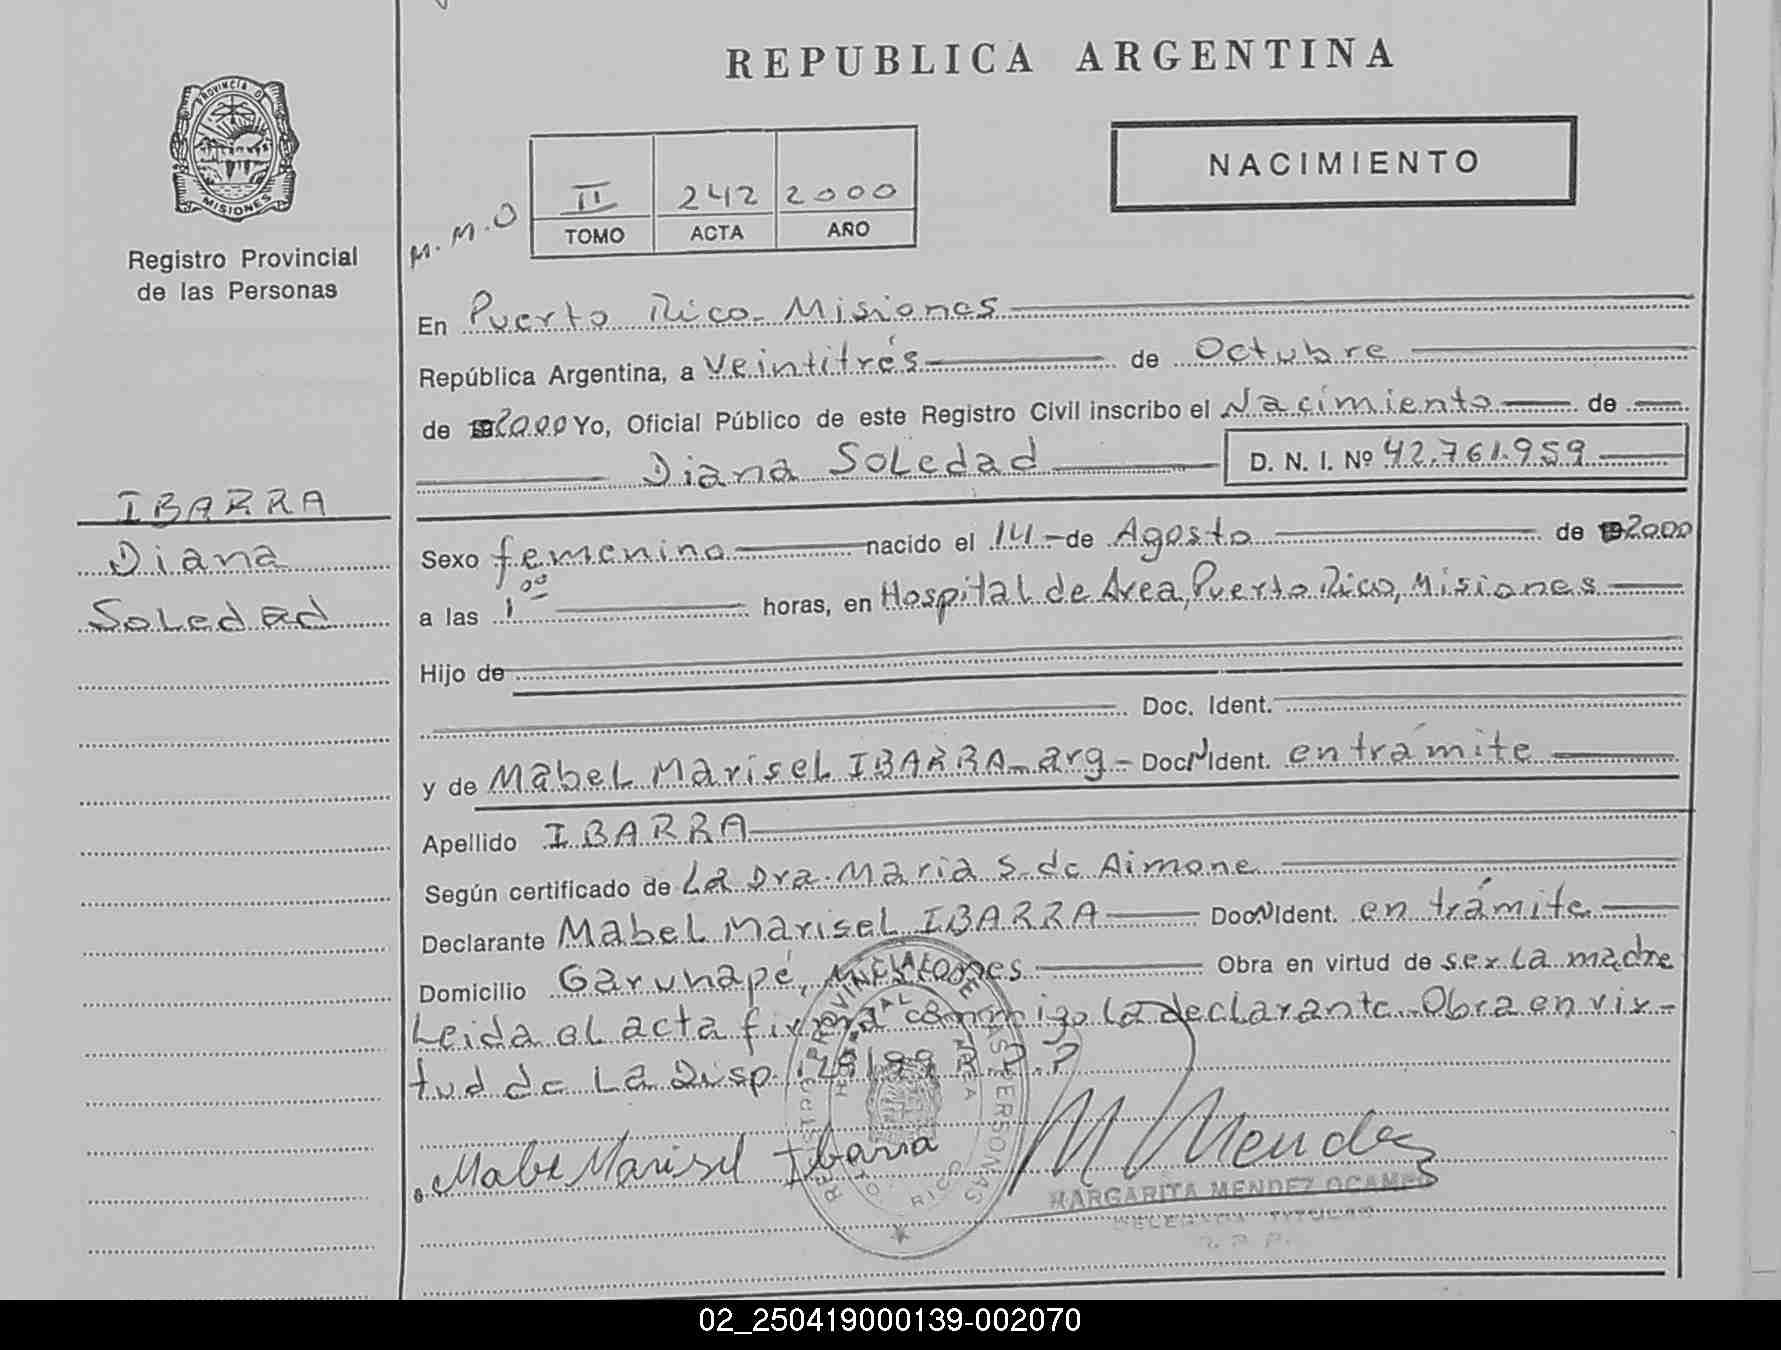 REPUBLICA ARGENTINA
PROVINCIA D
MISIONES
Registro Provincial
de las Personas
NACIMIENTO
M.M.O
II 242 2000
TOMO ACTA AÑO
En Puerto Rico - Misiones
República Argentina, a Veintitrés de Octubre
de 2000 Yo, Oficial Público de este Registro Civil inscribo el Nacimiento de
Diana Soledad D. N. I. Nº 42.761.959
IBARRA
Diana
Soledad
Sexo femenino nacido el 14 - de Agosto de 2000
a las 1 00 horas, en Hospital de Area, Puerto Rico, Misiones
Hijo de
Doc. Ident.
y de Mabel Marisel IBARRA - arg - Doc. N Ident. en trámite
Apellido IBARRA
Según certificado de La Dra. Maria S. de Aimone
Declarante Mabel Marisel IBARRA Doc. N Ident. en trámite
Domicilio Garuhapé, Misiones Obra en virtud de ser La madre
Leida el acta firma conmigo La declarante. Obra en vir-
tud de La Disp. R.P.P
Mabel Marisel Ibarra
M Mendez
MARGARITA MENDEZ OCAMPO
DELEGADA TITULAR
R. P. P.
02_250419000139-002070